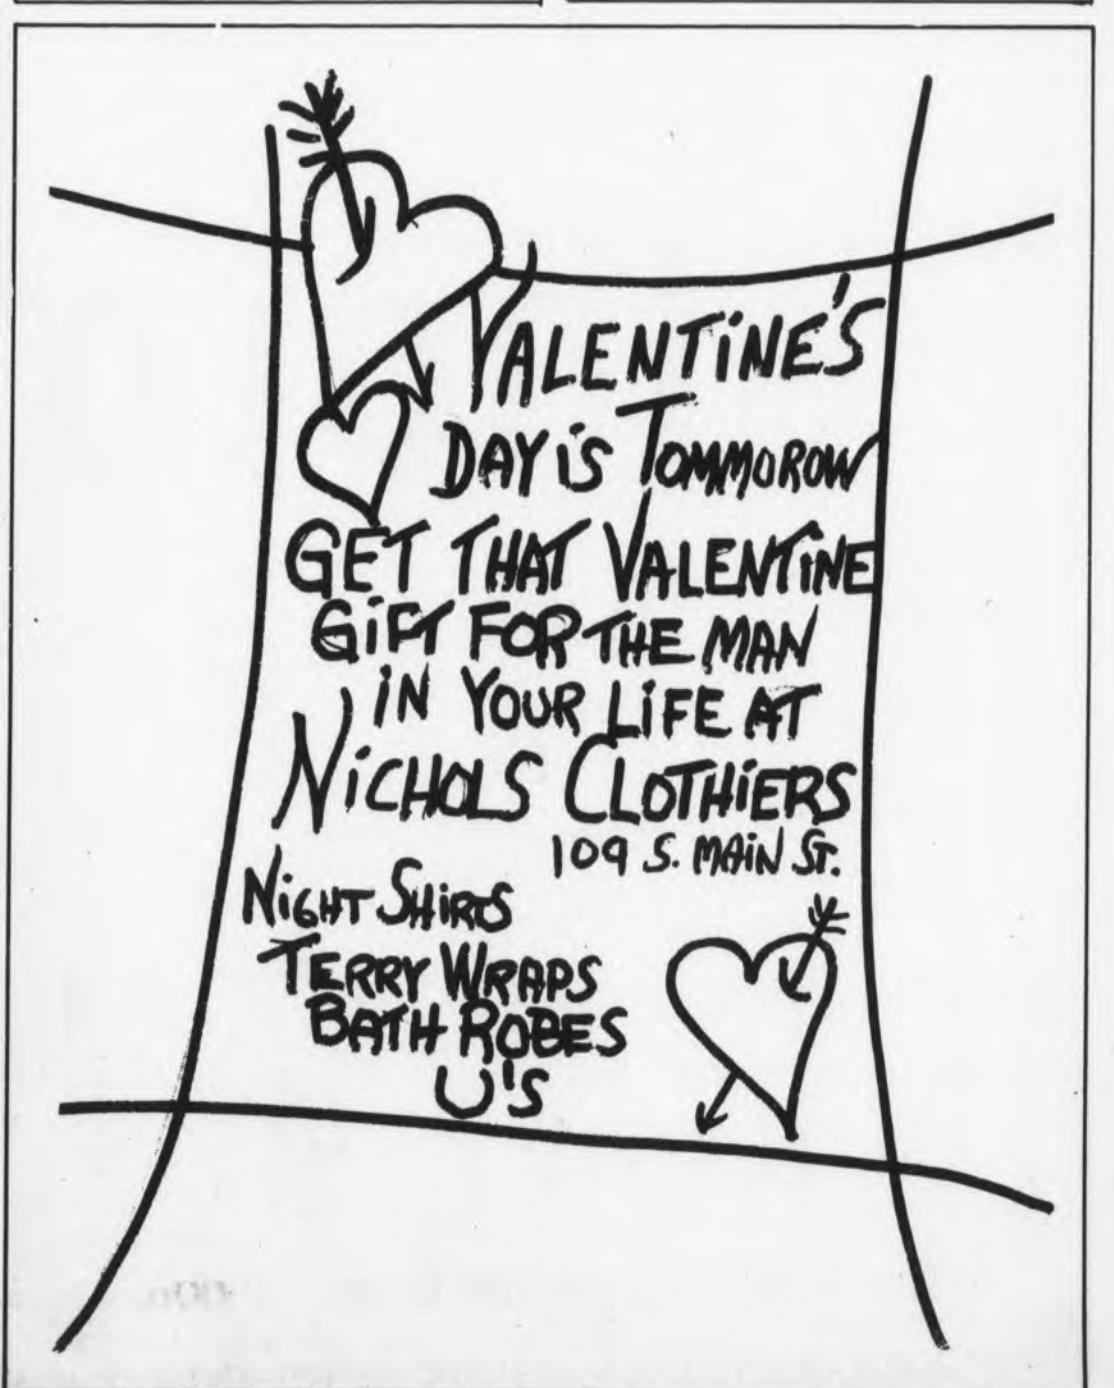 VALENTINE'S
DAY IS TOMMOROW
GET THAT VALENTINE
GIFT FOR THE MAN
IN YOUR LIFE AT
NICHOLS CLOTHIERS
109 S. MAIN ST.
NIGHT SHIRTS
TERRY WRAPS
BATH ROBES
U'S